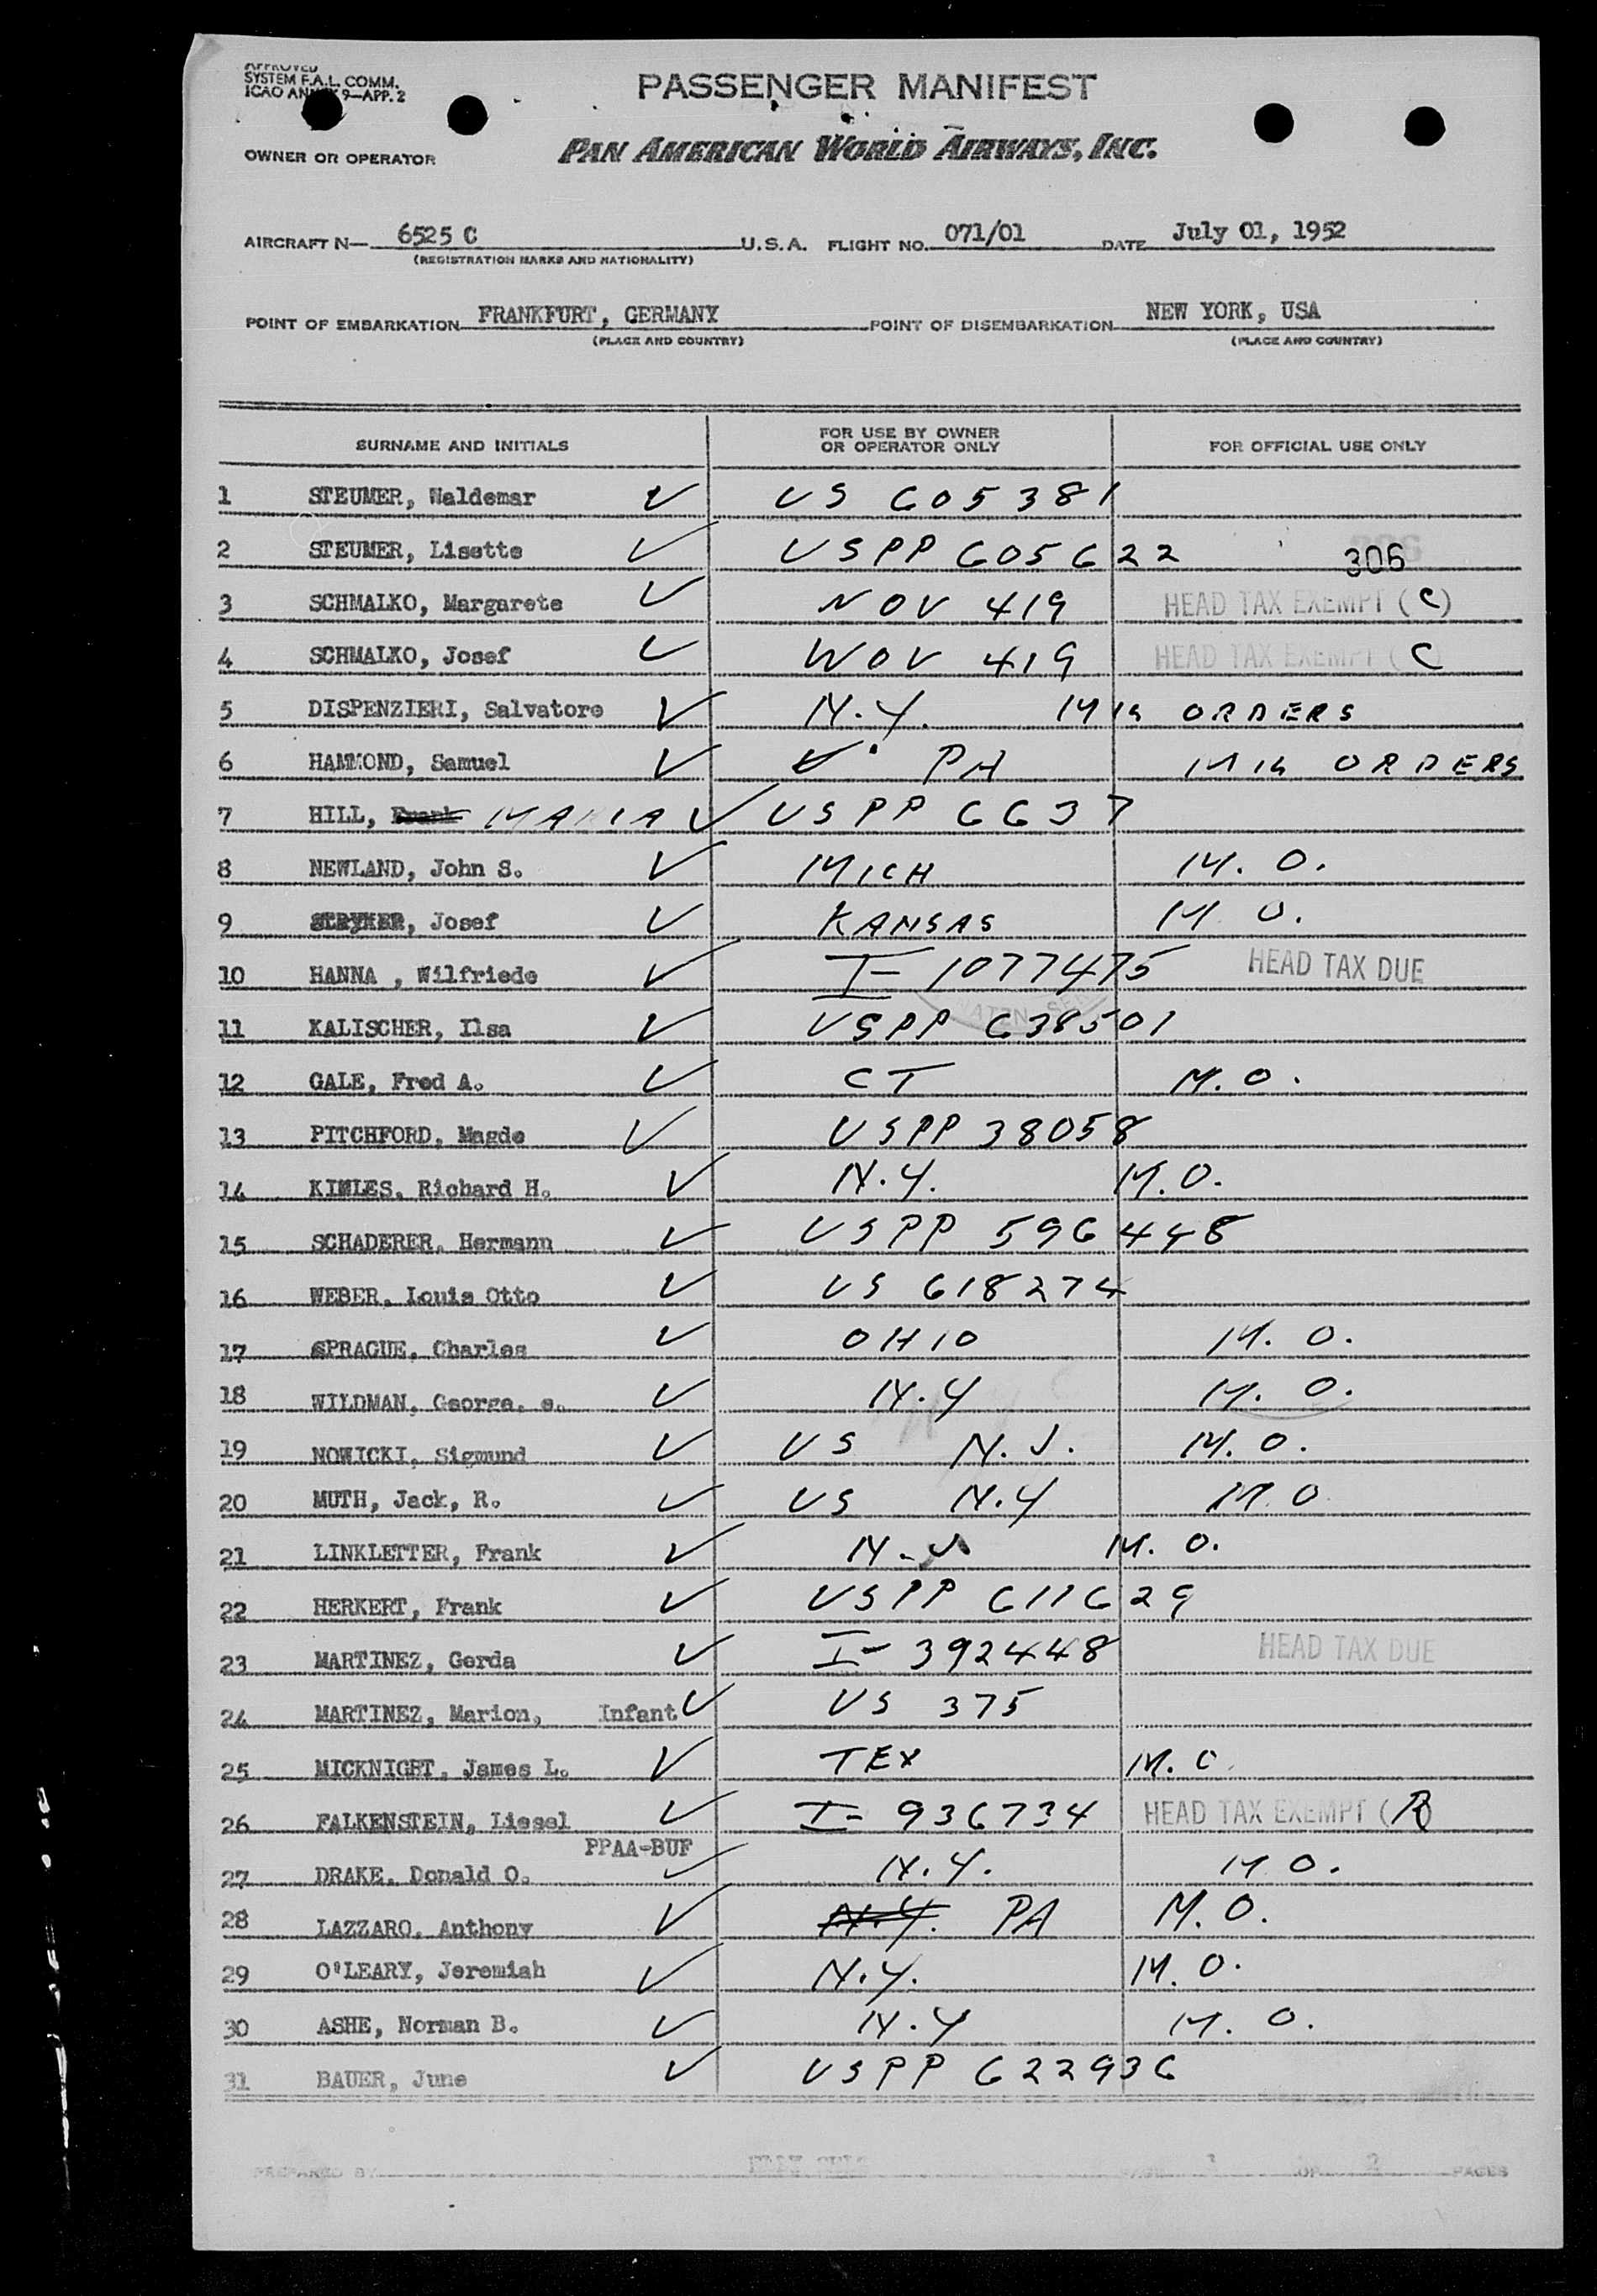 APPROVED
SYSTEM F.A.L. COMM.
ICAO ANNEX 9—APP. 2
PASSENGER MANIFEST
OWNER OR OPERATOR PAN AMERICAN WORLD AIRWAYS, INC.
AIRCRAFT N— 6525 C U.S.A. FLIGHT NO. 071/01 DATE July 01, 1952
(REGISTRATION MARKS AND NATIONALITY)
POINT OF EMBARKATION FRANKFURT, GERMANY POINT OF DISEMBARKATION NEW YORK, USA
(PLACE AND COUNTRY) (PLACE AND COUNTRY)
SURNAME AND INITIALS FOR USE BY OWNER OR OPERATOR ONLY FOR OFFICIAL USE ONLY
1 STEUMER, Waldemar ✓ US 605381
2 STEUMER, Lisette ✓ USPP 605622 306
3 SCHMALKO, Margarete ✓ NOV 419 HEAD TAX EXEMPT (C)
4 SCHMALKO, Josef ✓ WOV 419 HEAD TAX EXEMPT (C
5 DISPENZIERI, Salvatore ✓ N.Y. ORDERS
6 HAMMOND, Samuel ✓ PA ORDERS
7 HILL, Frank MARIA ✓ USPP 6637
8 NEWLAND, John S. ✓ MICH M.O.
9 STRYKER, Josef ✓ KANSAS M O.
10 HANNA , Wilfriede ✓ I- 1077475 HEAD TAX DUE
11 KALISCHER, Ilsa ✓ USPP 638501
12 GALE, Fred A. ✓ CT M.O.
13 PITCHFORD, Magde ✓ USPP 38058
14 KIMLES, Richard H. ✓ N.Y. M.O.
15 SCHADERER, Hermann ✓ USPP 596448
16 WEBER, Louis Otto ✓ US 618274
17 SPRAGUE, Charles ✓ OHIO M.O.
18 WILDMAN, George, s. ✓ N.Y M.O.
19 NOWICKI, Sigmund ✓ US N.J. M.O.
20 MUTH, Jack, R. ✓ US N.Y M.O
21 LINKLETTER, Frank ✓ N.J M.O.
22 HERKERT, Frank ✓ USPP 611629
23 MARTINEZ, Gerda ✓ I- 392448 HEAD TAX DUE
24 MARTINEZ, Marion, Infant ✓ US 375
25 MICKNIGHT, James L. ✓ TEX M.O.
26 FALKENSTEIN, Liesel ✓ I- 936734 HEAD TAX EXEMPT (R)
PPAA-BUF
27 DRAKE, Donald O. ✓ N.Y. M O.
28 LAZZARO, Anthony ✓ N.Y. PA M.O.
29 O'LEARY, Jeremiah ✓ N.Y. M.O.
30 ASHE, Norman B. ✓ N.Y M.O.
31 BAUER, June ✓ USPP 622936
PREPARED BY PAGE 1 OF 2 PAGES